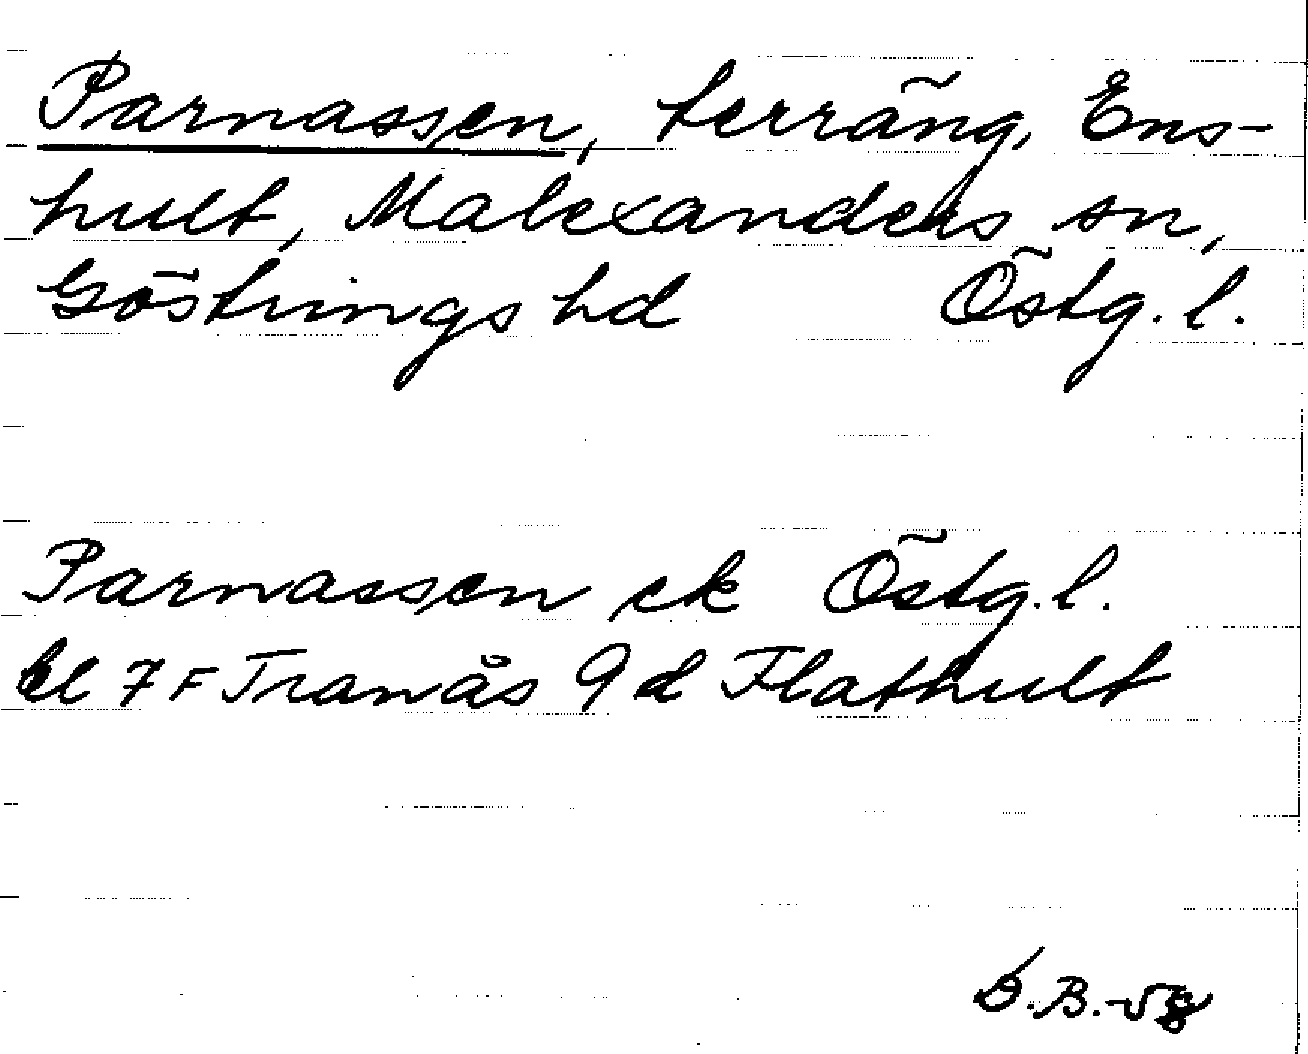 Parnassen, terräng, Ens-
hult, Malexanders sn,
Göstrings hd Östg. l.
Parnassen ek Östg. l.
bl 7 F Tranås 9 d Flathult
B.-58